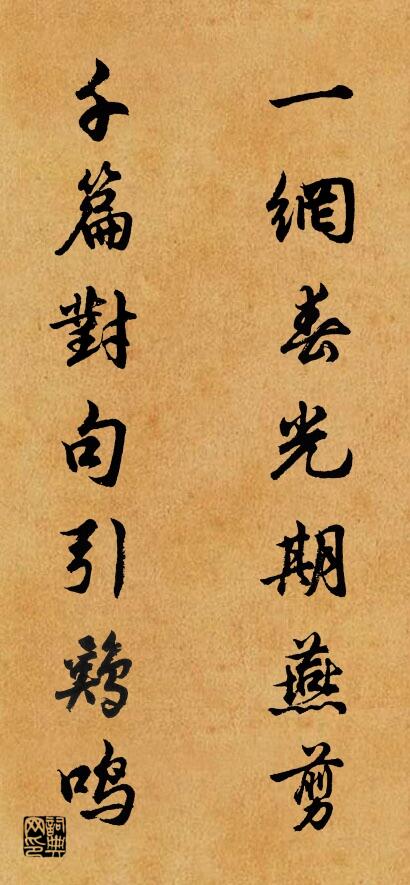 一網春光期燕剪
千篇對句引鷄鳴
詞典网印